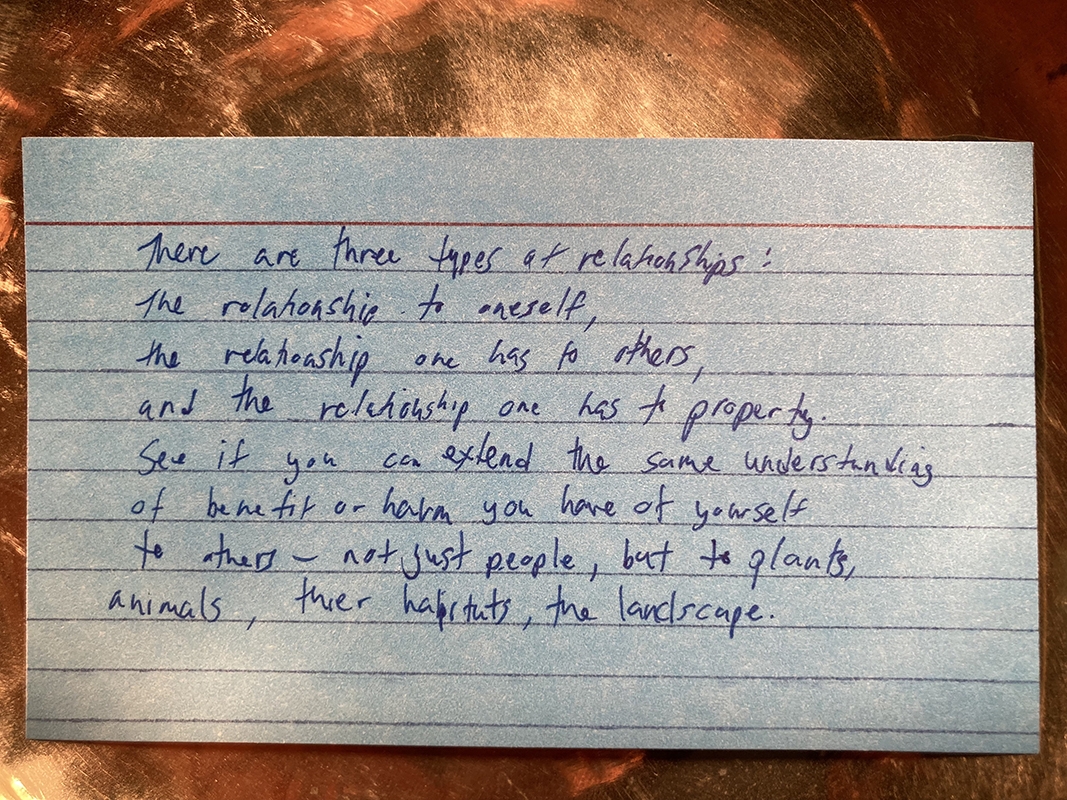 There are three types of relationships:
The relationship to oneself,
the relationship one has to others,
and the relationship one has to property.
See if you can extend the same understanding
of benefit or harm you have of yourself
to others – not just people, but to plants,
animals, thier habitats, the landscape.